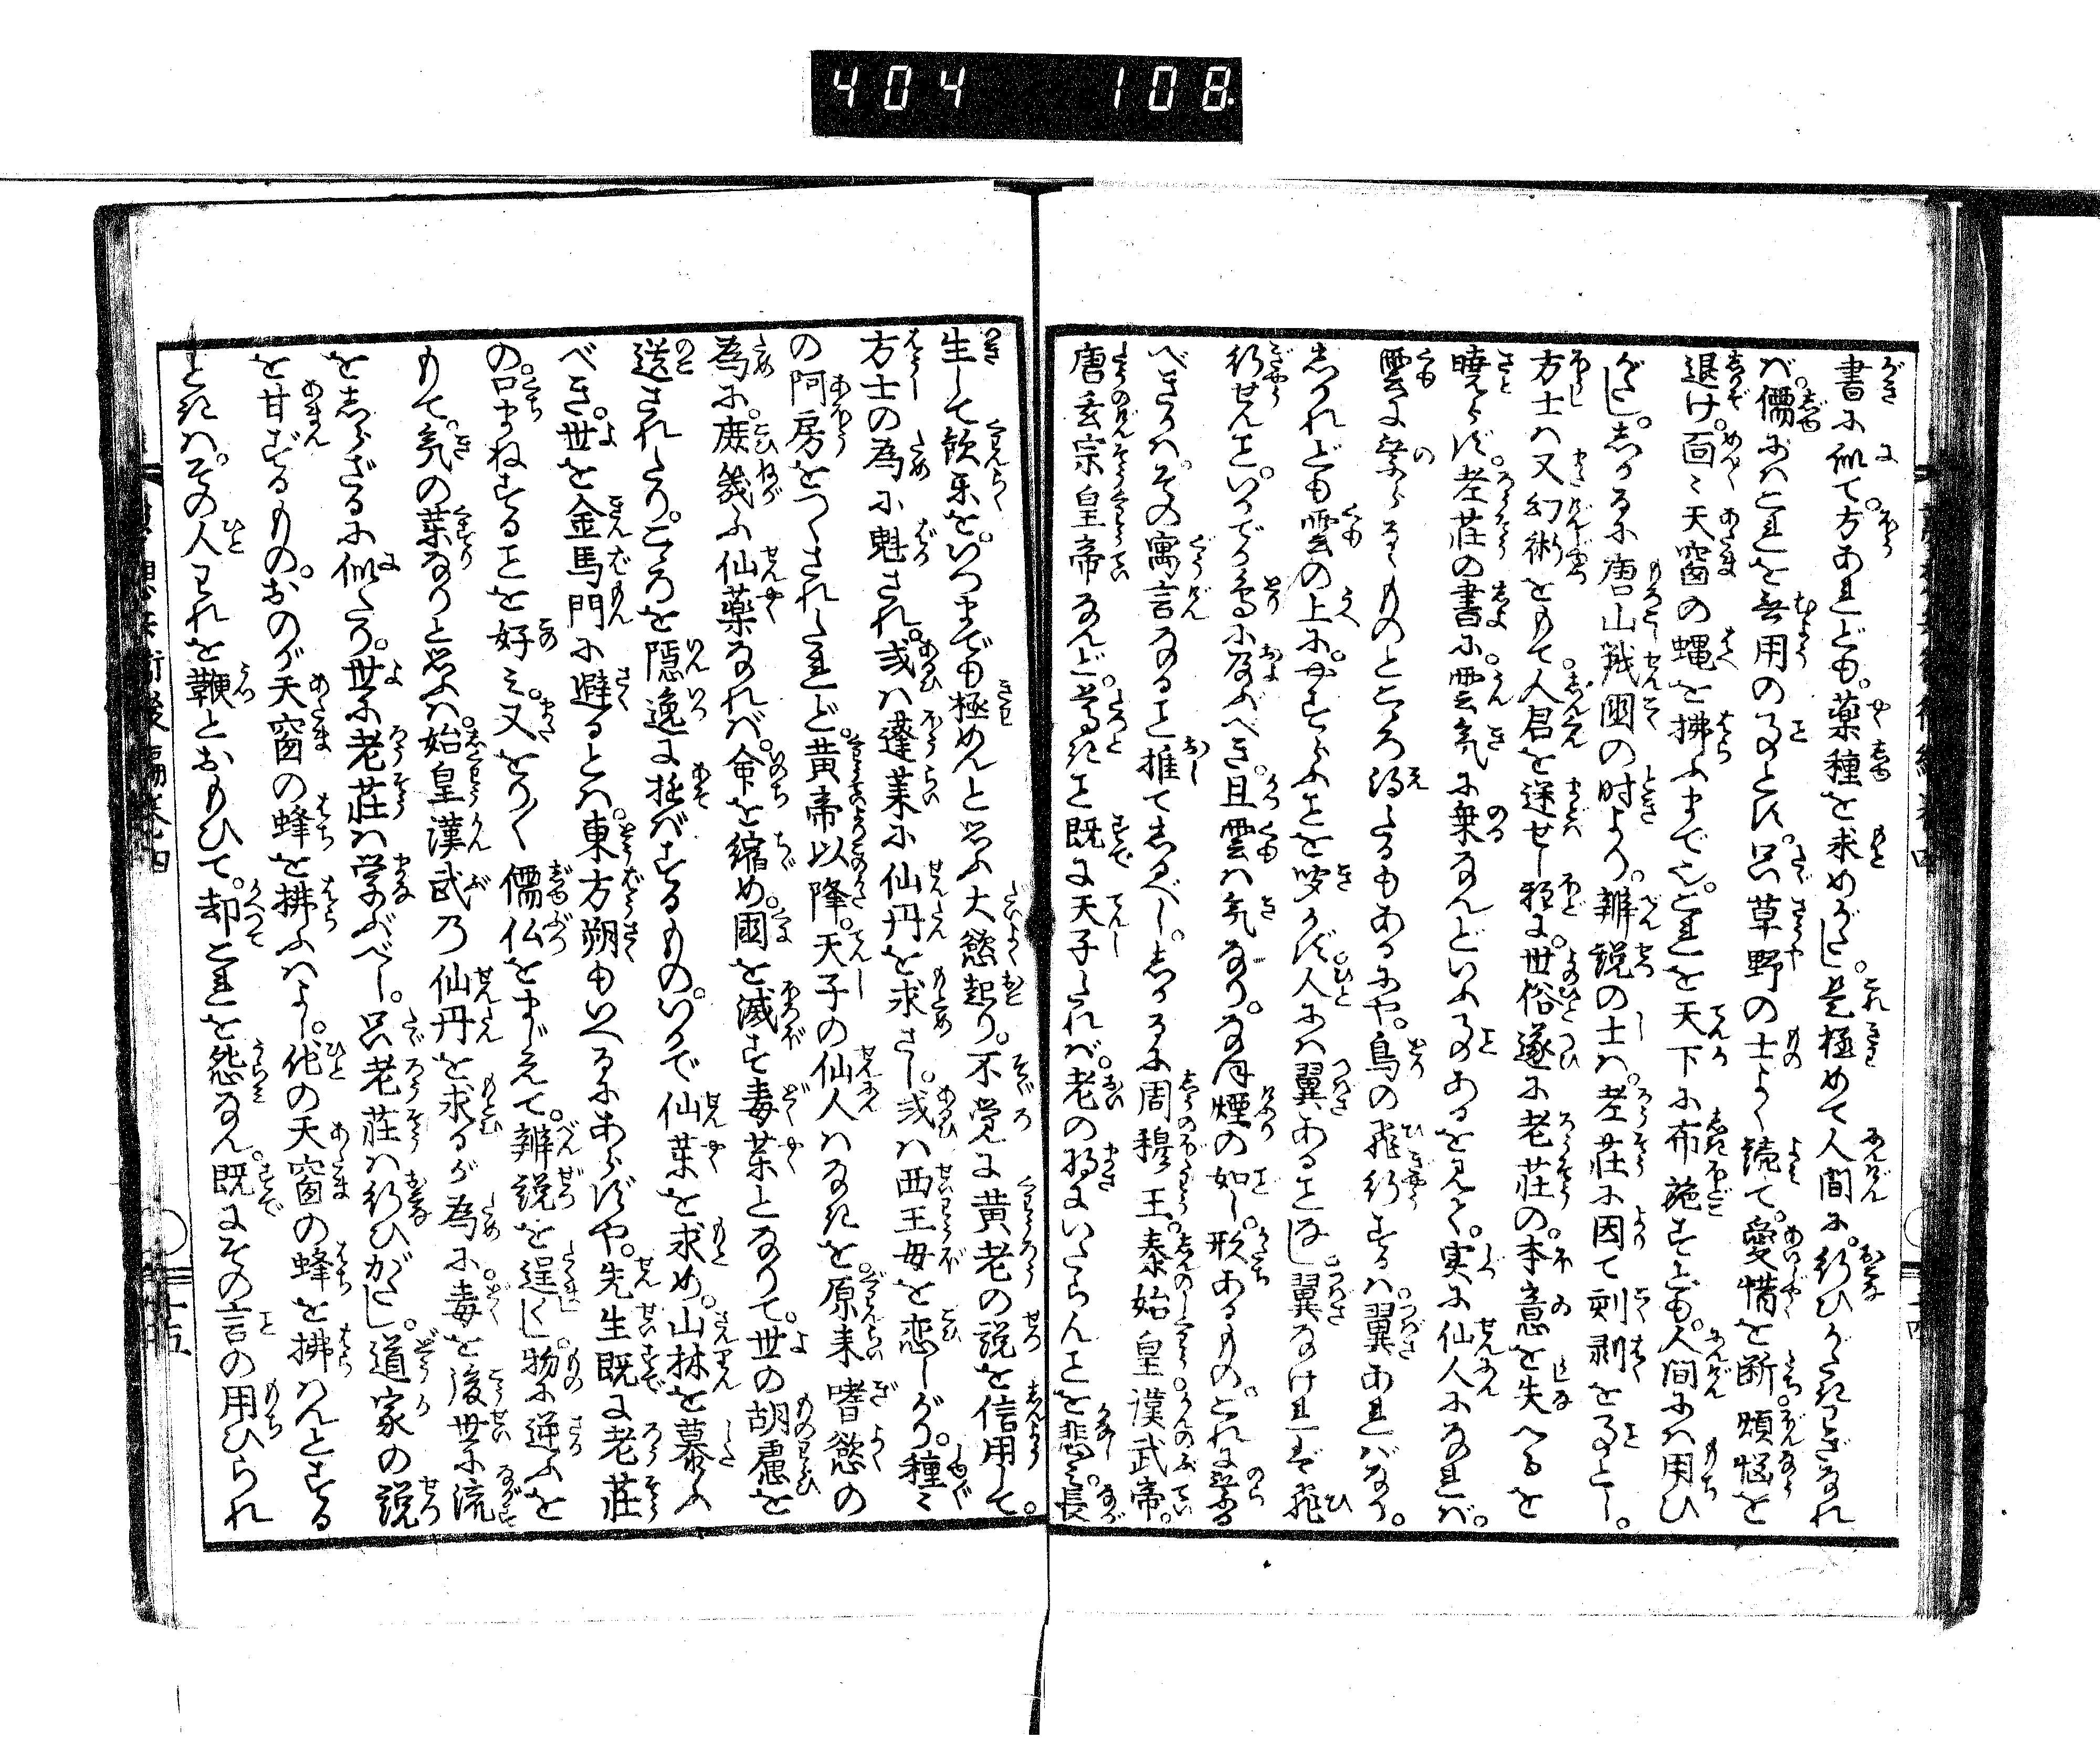 404 108
書に似て。方あれども。薬種を求めがたし。是極めて人間に。行ひがたきわざなれ
ば。儒にはこれを無用の事とす。只草野の士よく読て。愛惜を断。煩悩を
退け。面々天窗の蠅を拂ふまで也。これを天下に布施すとも。人間には用ひ
がたし。しかるに唐山戦国の時より。辨説の士は。老荘に因て剽剥を事とし。
方士は又幻術をもて。人君を迷せし程に。世俗遂に老荘の。本意を失へるを
暁らず。老荘の書に。雲気に乗なんどいふ事あるを見て。実に仙人になれば。
雲に乗らるゝものとこゝろ得たるもあるにや。鳥の飛行するは。翼あればなり。
しかれども雲の上に。やすらふことを聞かず。人には翼あることなし。翼なければ飛
行せんこと。いかでか鳥に及ぶべき。且雲は気なり。なほ煙の如し。形あるもの。これに乗る
べきかは。その寓言なること推て知るべし。しかるに周穆王。秦始皇。漢武帝。
唐玄宗皇帝なんど。尊きこと既に天子たれば。老の将にいたらんことを悲み。長
生して歓楽を。いつまでも極めんと思ふ大慾起り。不覚に黄老の説を信用して。
方士の為に魅され。或は蓬莱に仙丹を求さし。或は西王母を恋しがり。種々
の阿房をつくされたれど。黄帝以降。天子の仙人はなきを。原来嗜慾の
為に。庶幾ふ仙薬なれば。命を縮め。国を滅す毒薬となりて。世の胡慮を
送されたり。こゝろを隠逸に遊ばするもの。いかで仙薬を求め。山林を慕ふ
べき。世を金馬門に避るとは。東方朔もいへるにあらずや。先生既に老荘
の口まねすることを好み。又をり〱儒仏をまじえて。辨説を逞くし。物に逆ふを
もて。気の薬なりと思ふは。始皇漢武の仙丹を求るが為に。毒を後世に流
をしらざるに似たり。世に老荘は学ぶべし。只老荘は行ひがたし。道家の説
を甘ずるもの。おのが天窗の蜂を拂ふはよし。他の天窗の蜂を拂はんとする
ときは。その人われを鞭とおもひて。却これを怨なん。既にその言の用ひられ